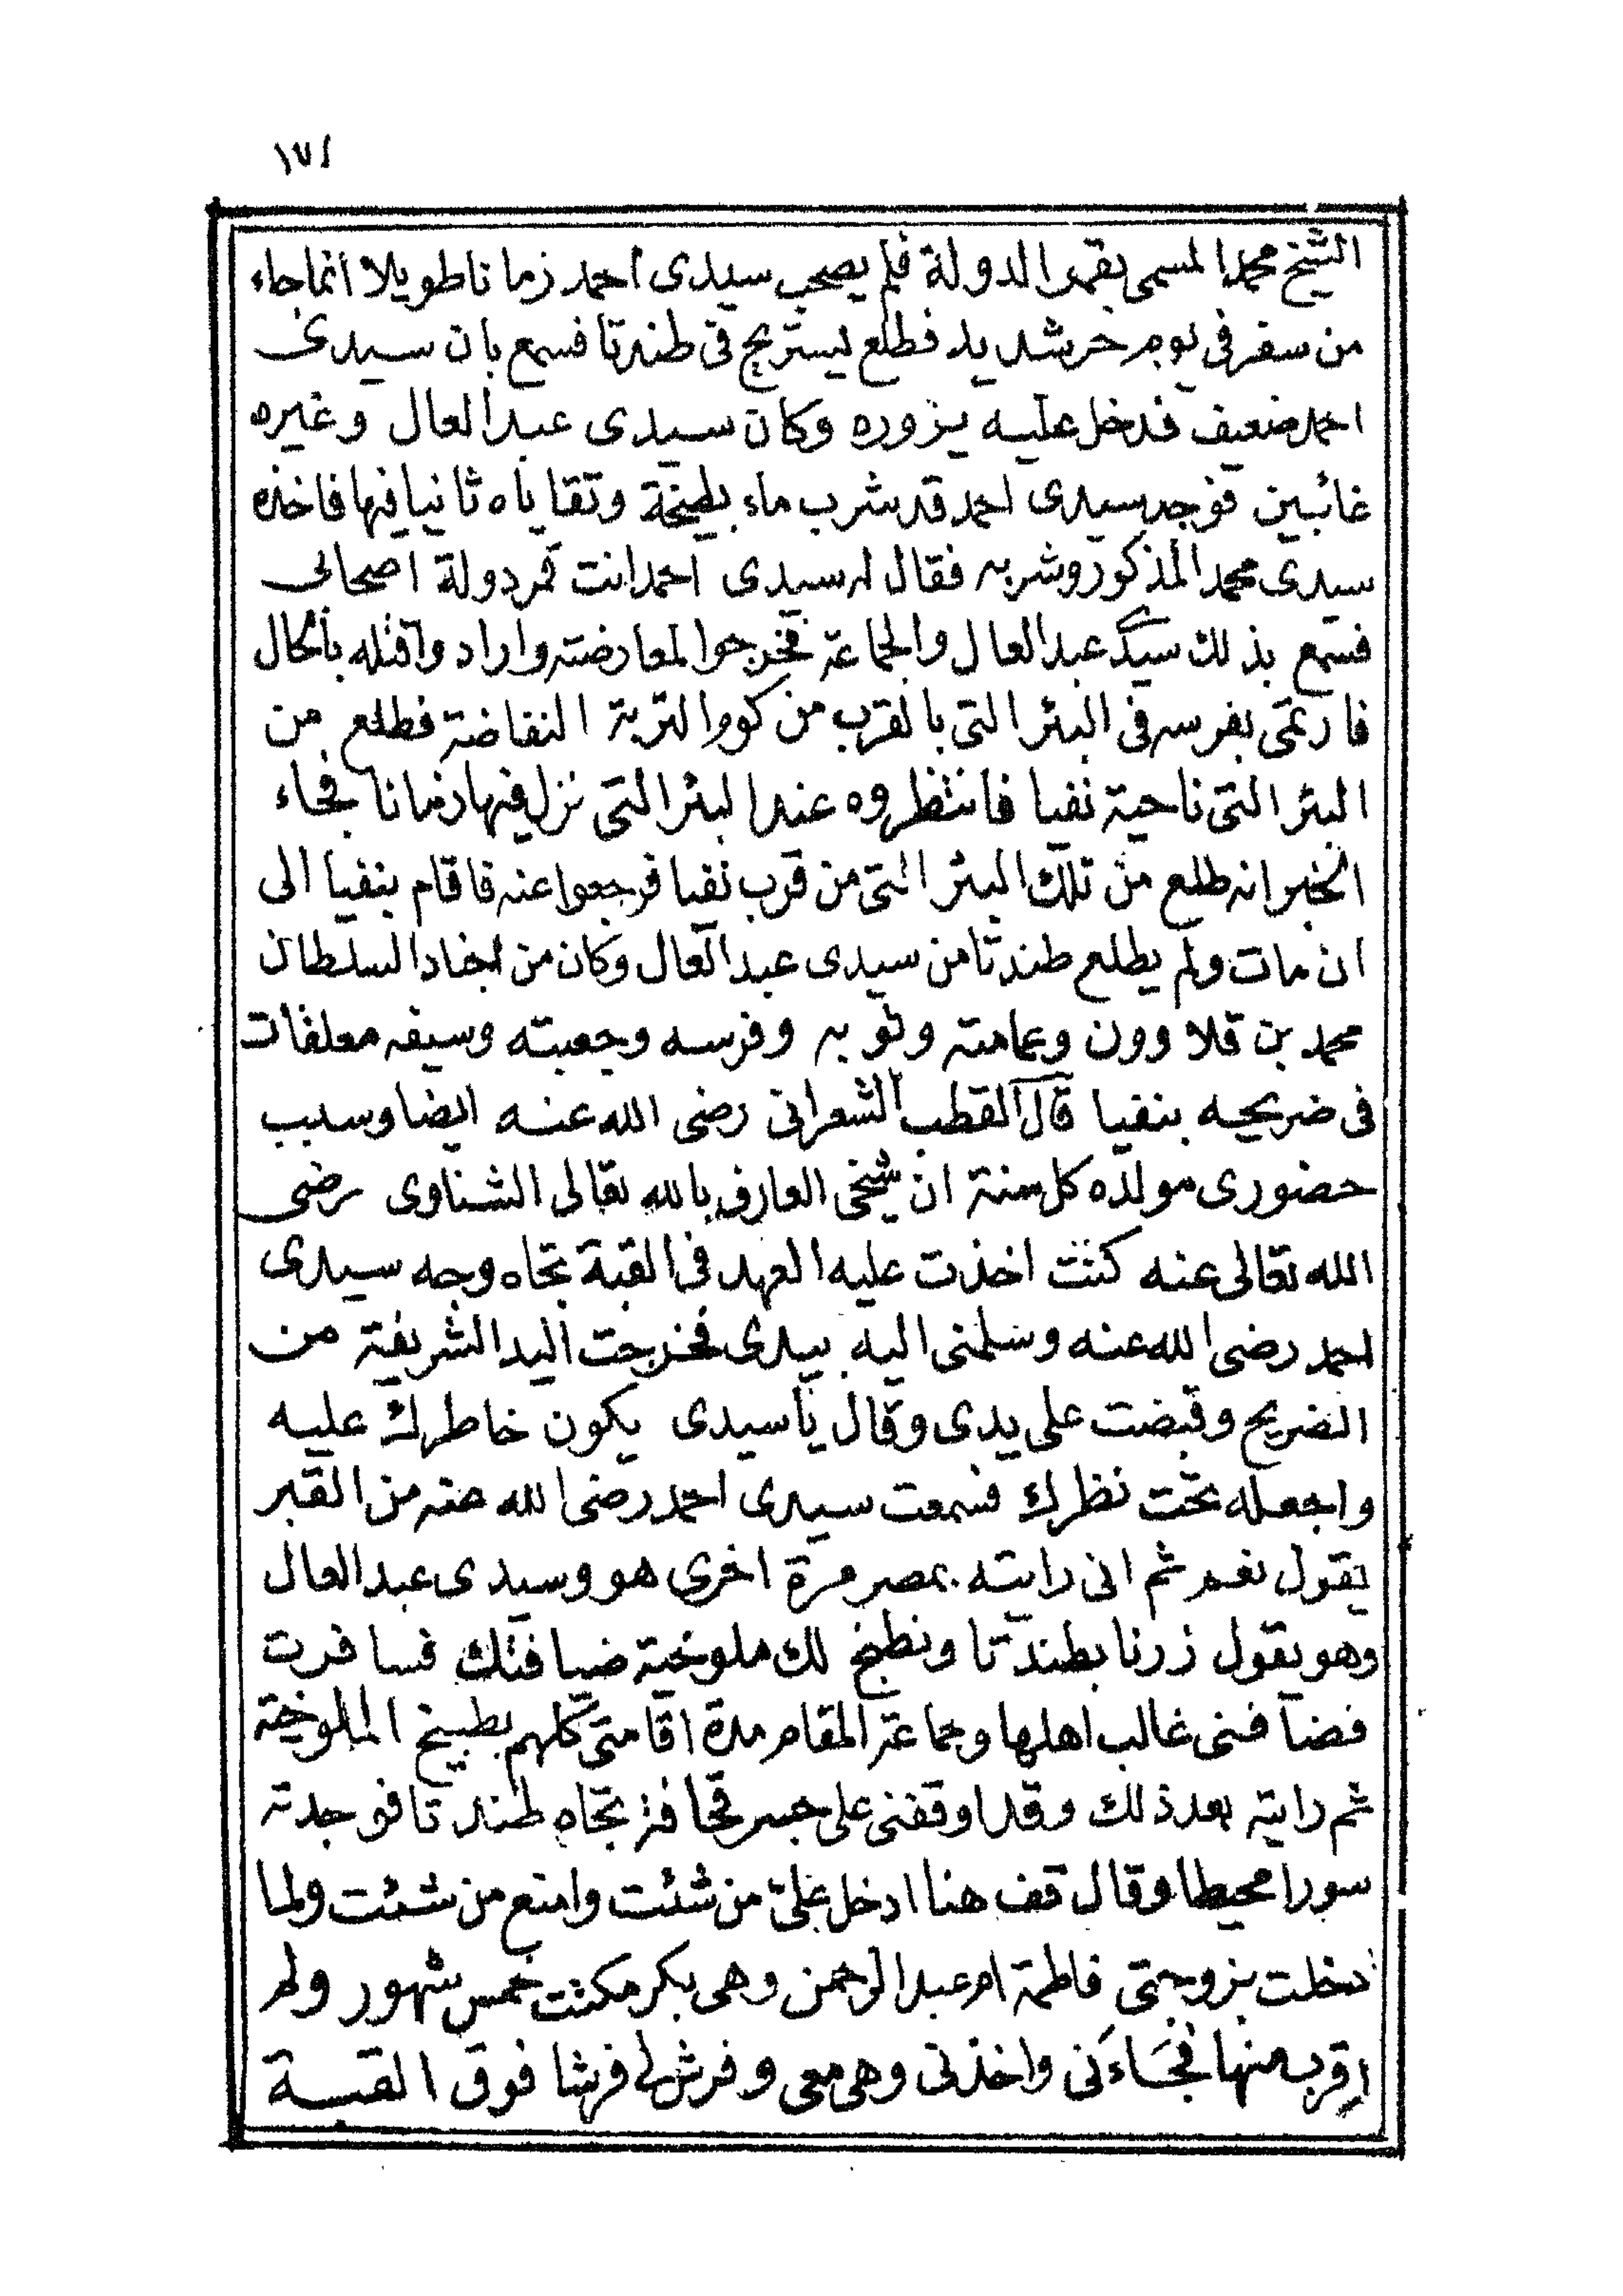 ١٧١
الشيخ محمد المسمى بقمر الدولة فلم يصحب سيدى احمد زمانا طويلا انما جاء
من سفر فى يوم حر شديد فطلع ليستريح فى طندتا فسمع بان سيدى
احمد ضعيف فدخل عليه يزوره وكان سيدى عبد العال وغيره
غائبين فوجد سيدى احمد قد شرب ماء بطيخة وتقاياه ثانيا فيها فاخذه
سيدى محمد المذكور وشربه فقال له سيدى احمد انت قمر دولة اصحابى
فسمع بذلك سيدى عبد العال والجماعة فخرجوا لمعارضته واراد واقتله بالحال
فارتمى بفرسه فى البئر التى بالقرب من كوم التربة النفاضة فطلع من
البئر التى ناحية نفيا فانتظروه عند البئر التى نزل فيها زمانا فجاء
الخبر انه طلع من تلك البئر التى من قرب نفيا فرجعوا عنه فاقام بنفيا الى
ان مات ولم يطلع طندتا من سيدى عبد العال وكان من اجناد السلطان
محمد بن قلاوون وعمامته وثوبه وفرسه وجعبته وسيفه معلقات
فى ضريحه بنفيا قال القطب الشعرانى رضى الله عنه ايضا وسبب
حضورى مولده كل سنة ان شيخى العارف بالله تعالى الشناوى رضى
الله تعالى عنه كنت اخذت عليه العهد فى القبة تجاه وجه سيدى
احمد رضى الله عنه وسلمنى اليه بيدى فخرجت اليد الشريفة من
الضريح وقبضت على يدى وقال يا سيدى يكون خاطرك عليه
واجعله تحت نظرك فسمعت سيدى احمد رضى الله عنه من القبر
يقول نعم ثم انى رايته بمصر مرة اخرى هو وسيدى عبد العال
وهو يقول زرنا بطندتا ونطبخ لك ملوخية ضيافتك فسافرت
فضافنى غالب اهلها وجماعة المقام مدة اقامتى كلهم بطبيخ الملوخية
ثم رايته بعد ذلك وقد اوقفنى على جسر قحافة تجاه طندتا فوجدته
سورا محيطا وقال قف هنا ادخل على من شئت وامنع من شئت ولما
دخلت بزوجتى فاطمة ام عبد الرحمن وهى بكر مكثت خمس شهور ولم
اقرب منها فجاءنى واخذنى وهى معى وفرش لى فرشا فوق القبة